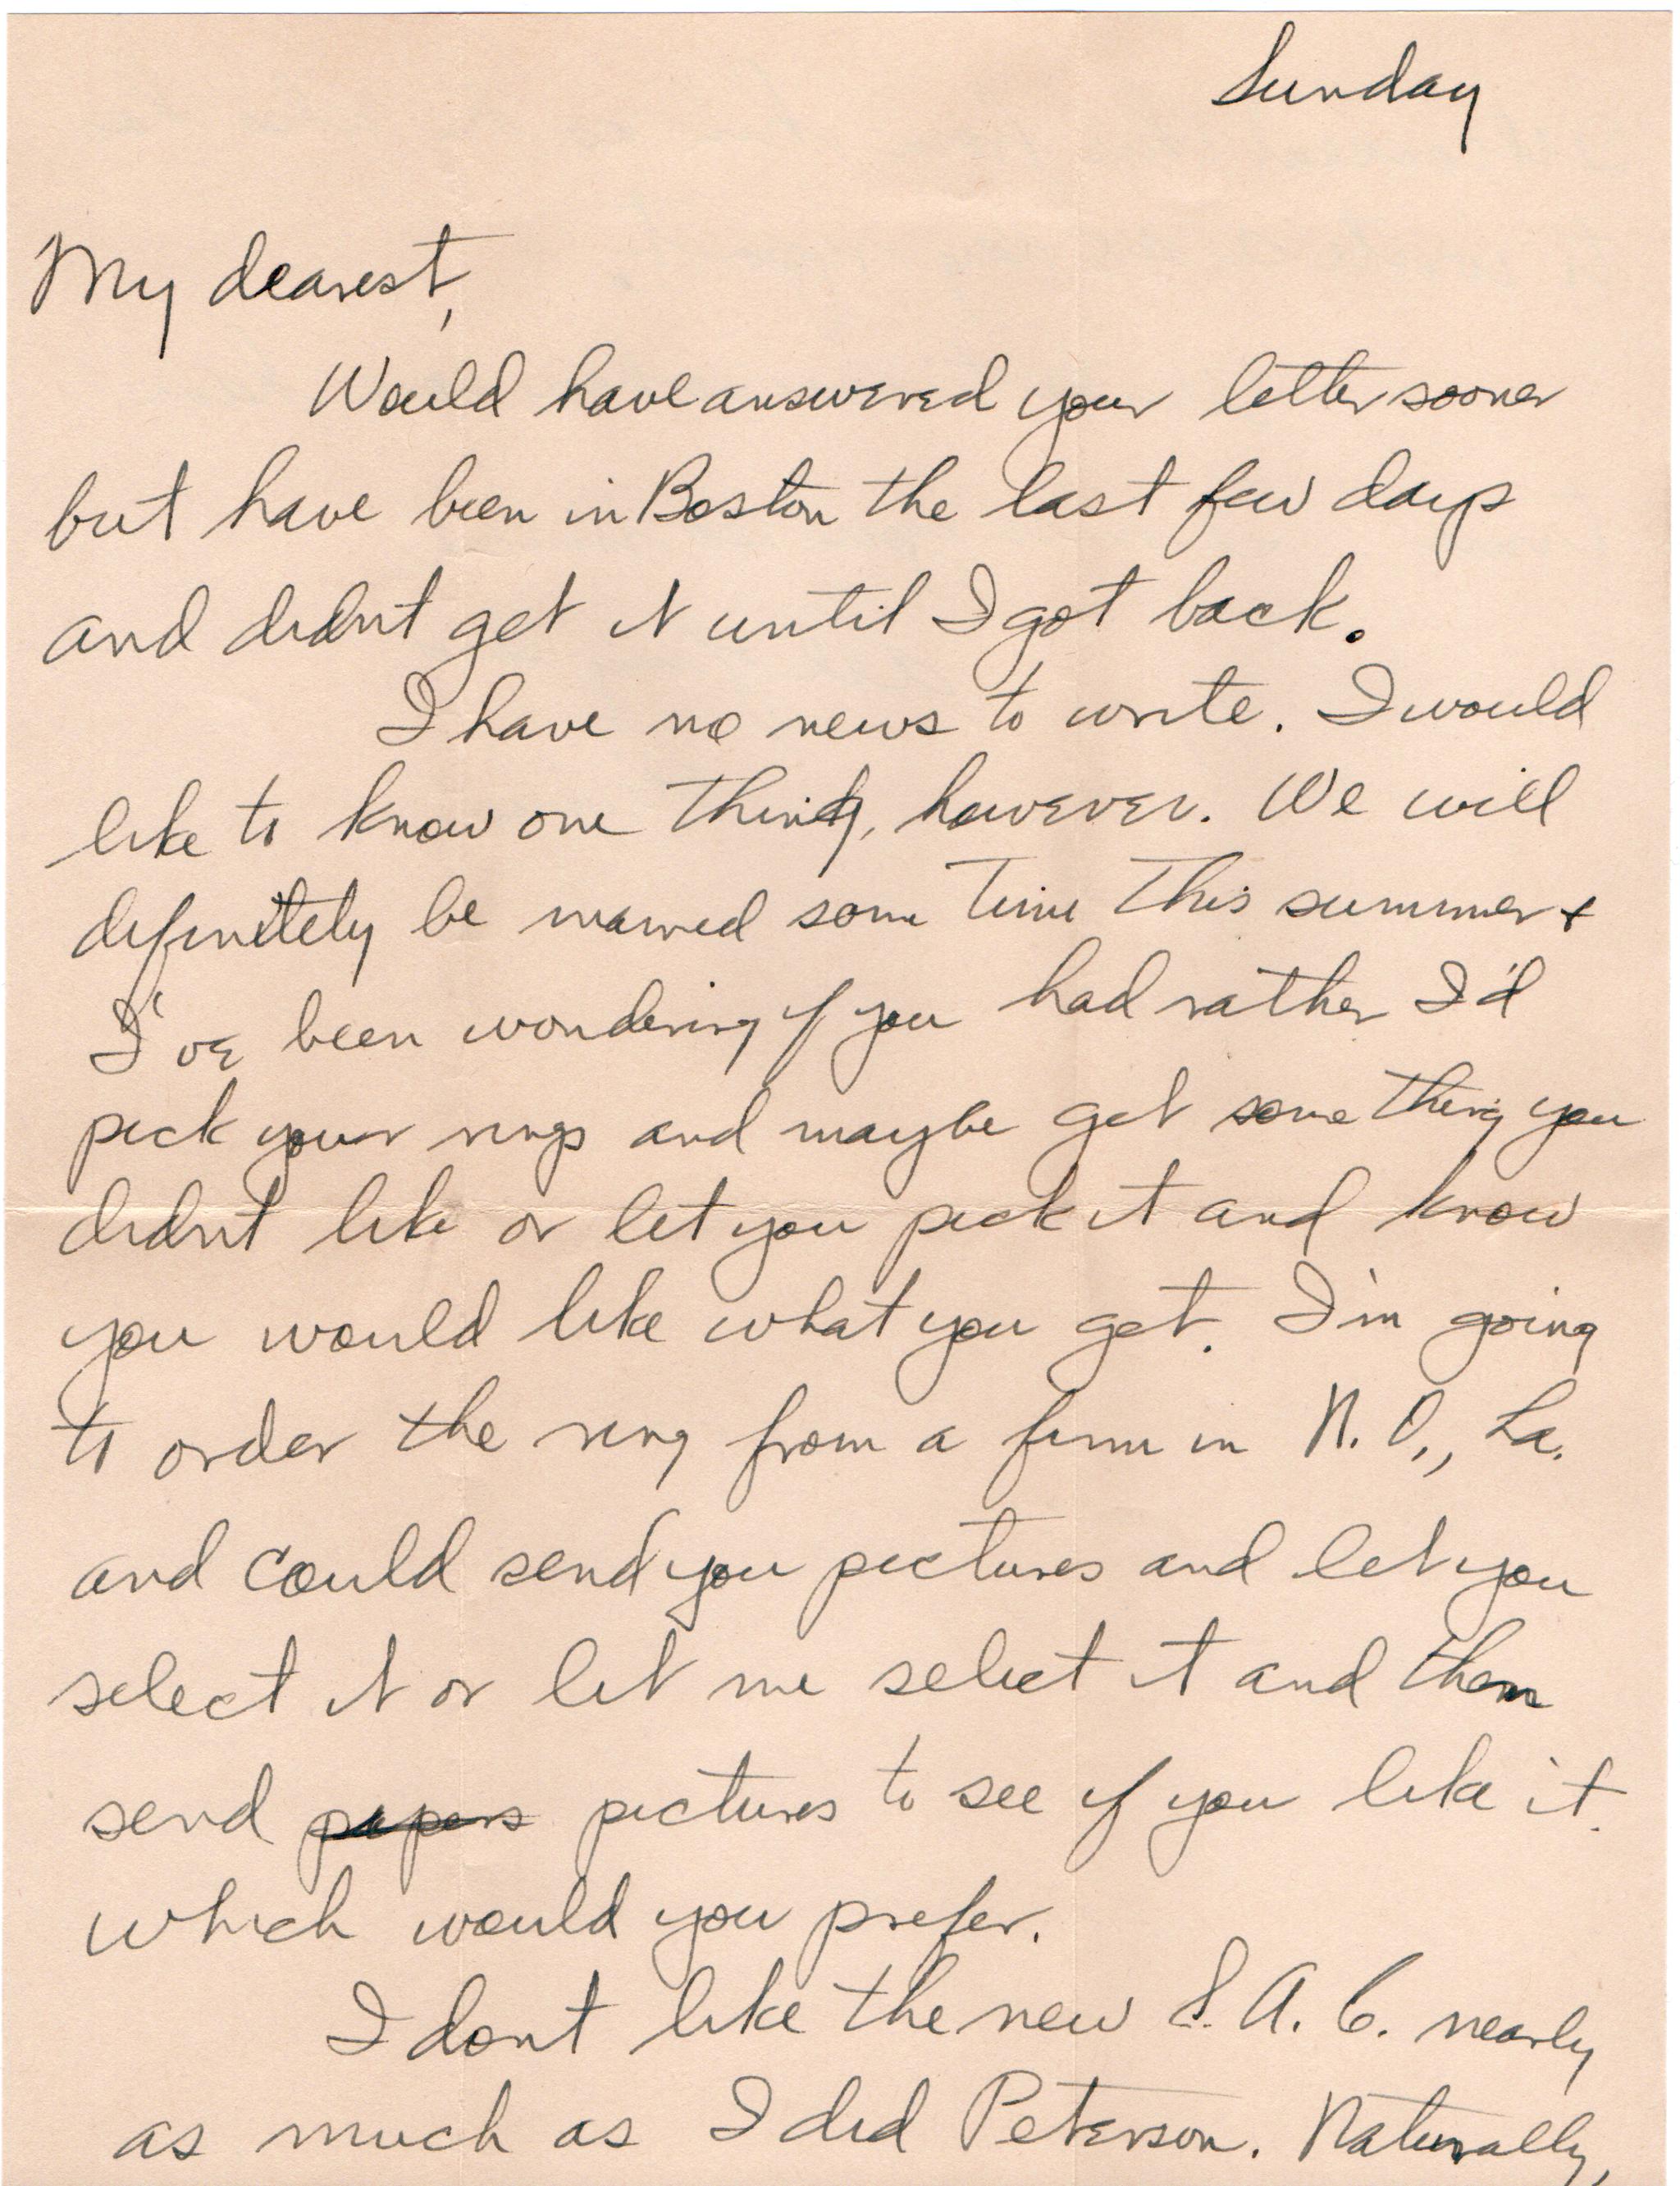 Sunday
My dearest,
Would have answered your letter sooner
but have been in Boston the last few days
and didn't get it until I got back.
I have no news to write. I would
like to know one thing, however. We will
definitely be married some time this summer +
I've been wondering if you had rather I'd
pick your rings and maybe get something you
didn't like or let you pick it and know
you would like what you get. I'm going
to order the ring from a firm in N. O., La.
and could send you pictures and let you
select it or let me select it and then
send papers pictures to see if you like it.
which would you prefer.
I dont like the new S. A. C. nearly
as much as I did Peterson. Naturally,